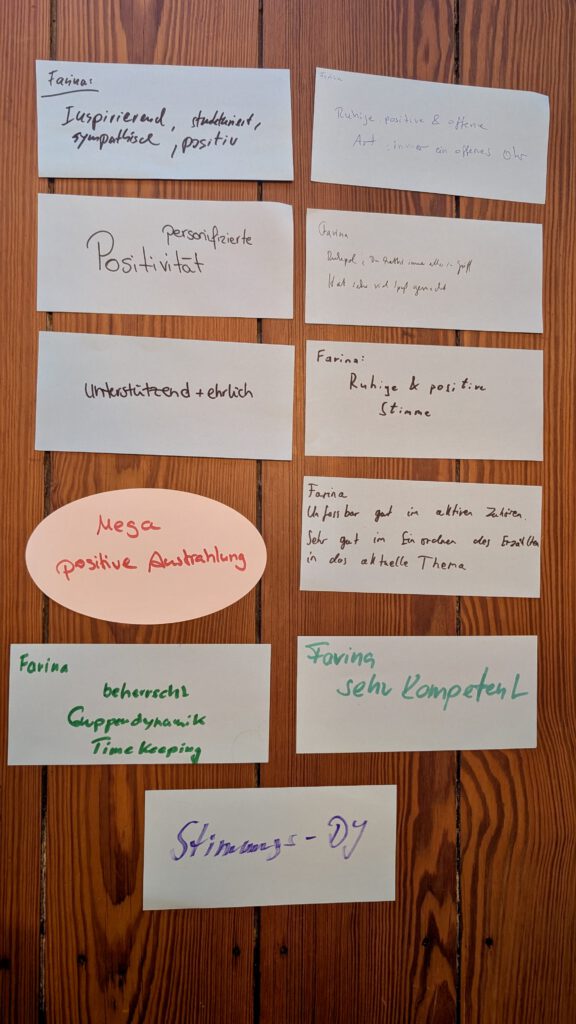 Farina:
Inspirierend, strukturiert,
sympathisch, positiv
Farina
Ruhige, positive & offene
Art, immer ein offenes Ohr
personifizierte
Positivität
Farina
Ruhepol, Du hattest immer alles im Griff
Hat sehr viel Spaß gemacht
Unterstützend + ehrlich
Farina:
Ruhige & positive
Stimme
Mega
positive Austrahlung
Farina
Unfassbar gut im aktiven Zuhören.
Sehr gut im Einordnen des Erzählten
in das aktuelle Thema
Farina
beherrscht
Gruppendynamik
Timekeeping
Farina
sehr kompetent
Stimmungs-DJ